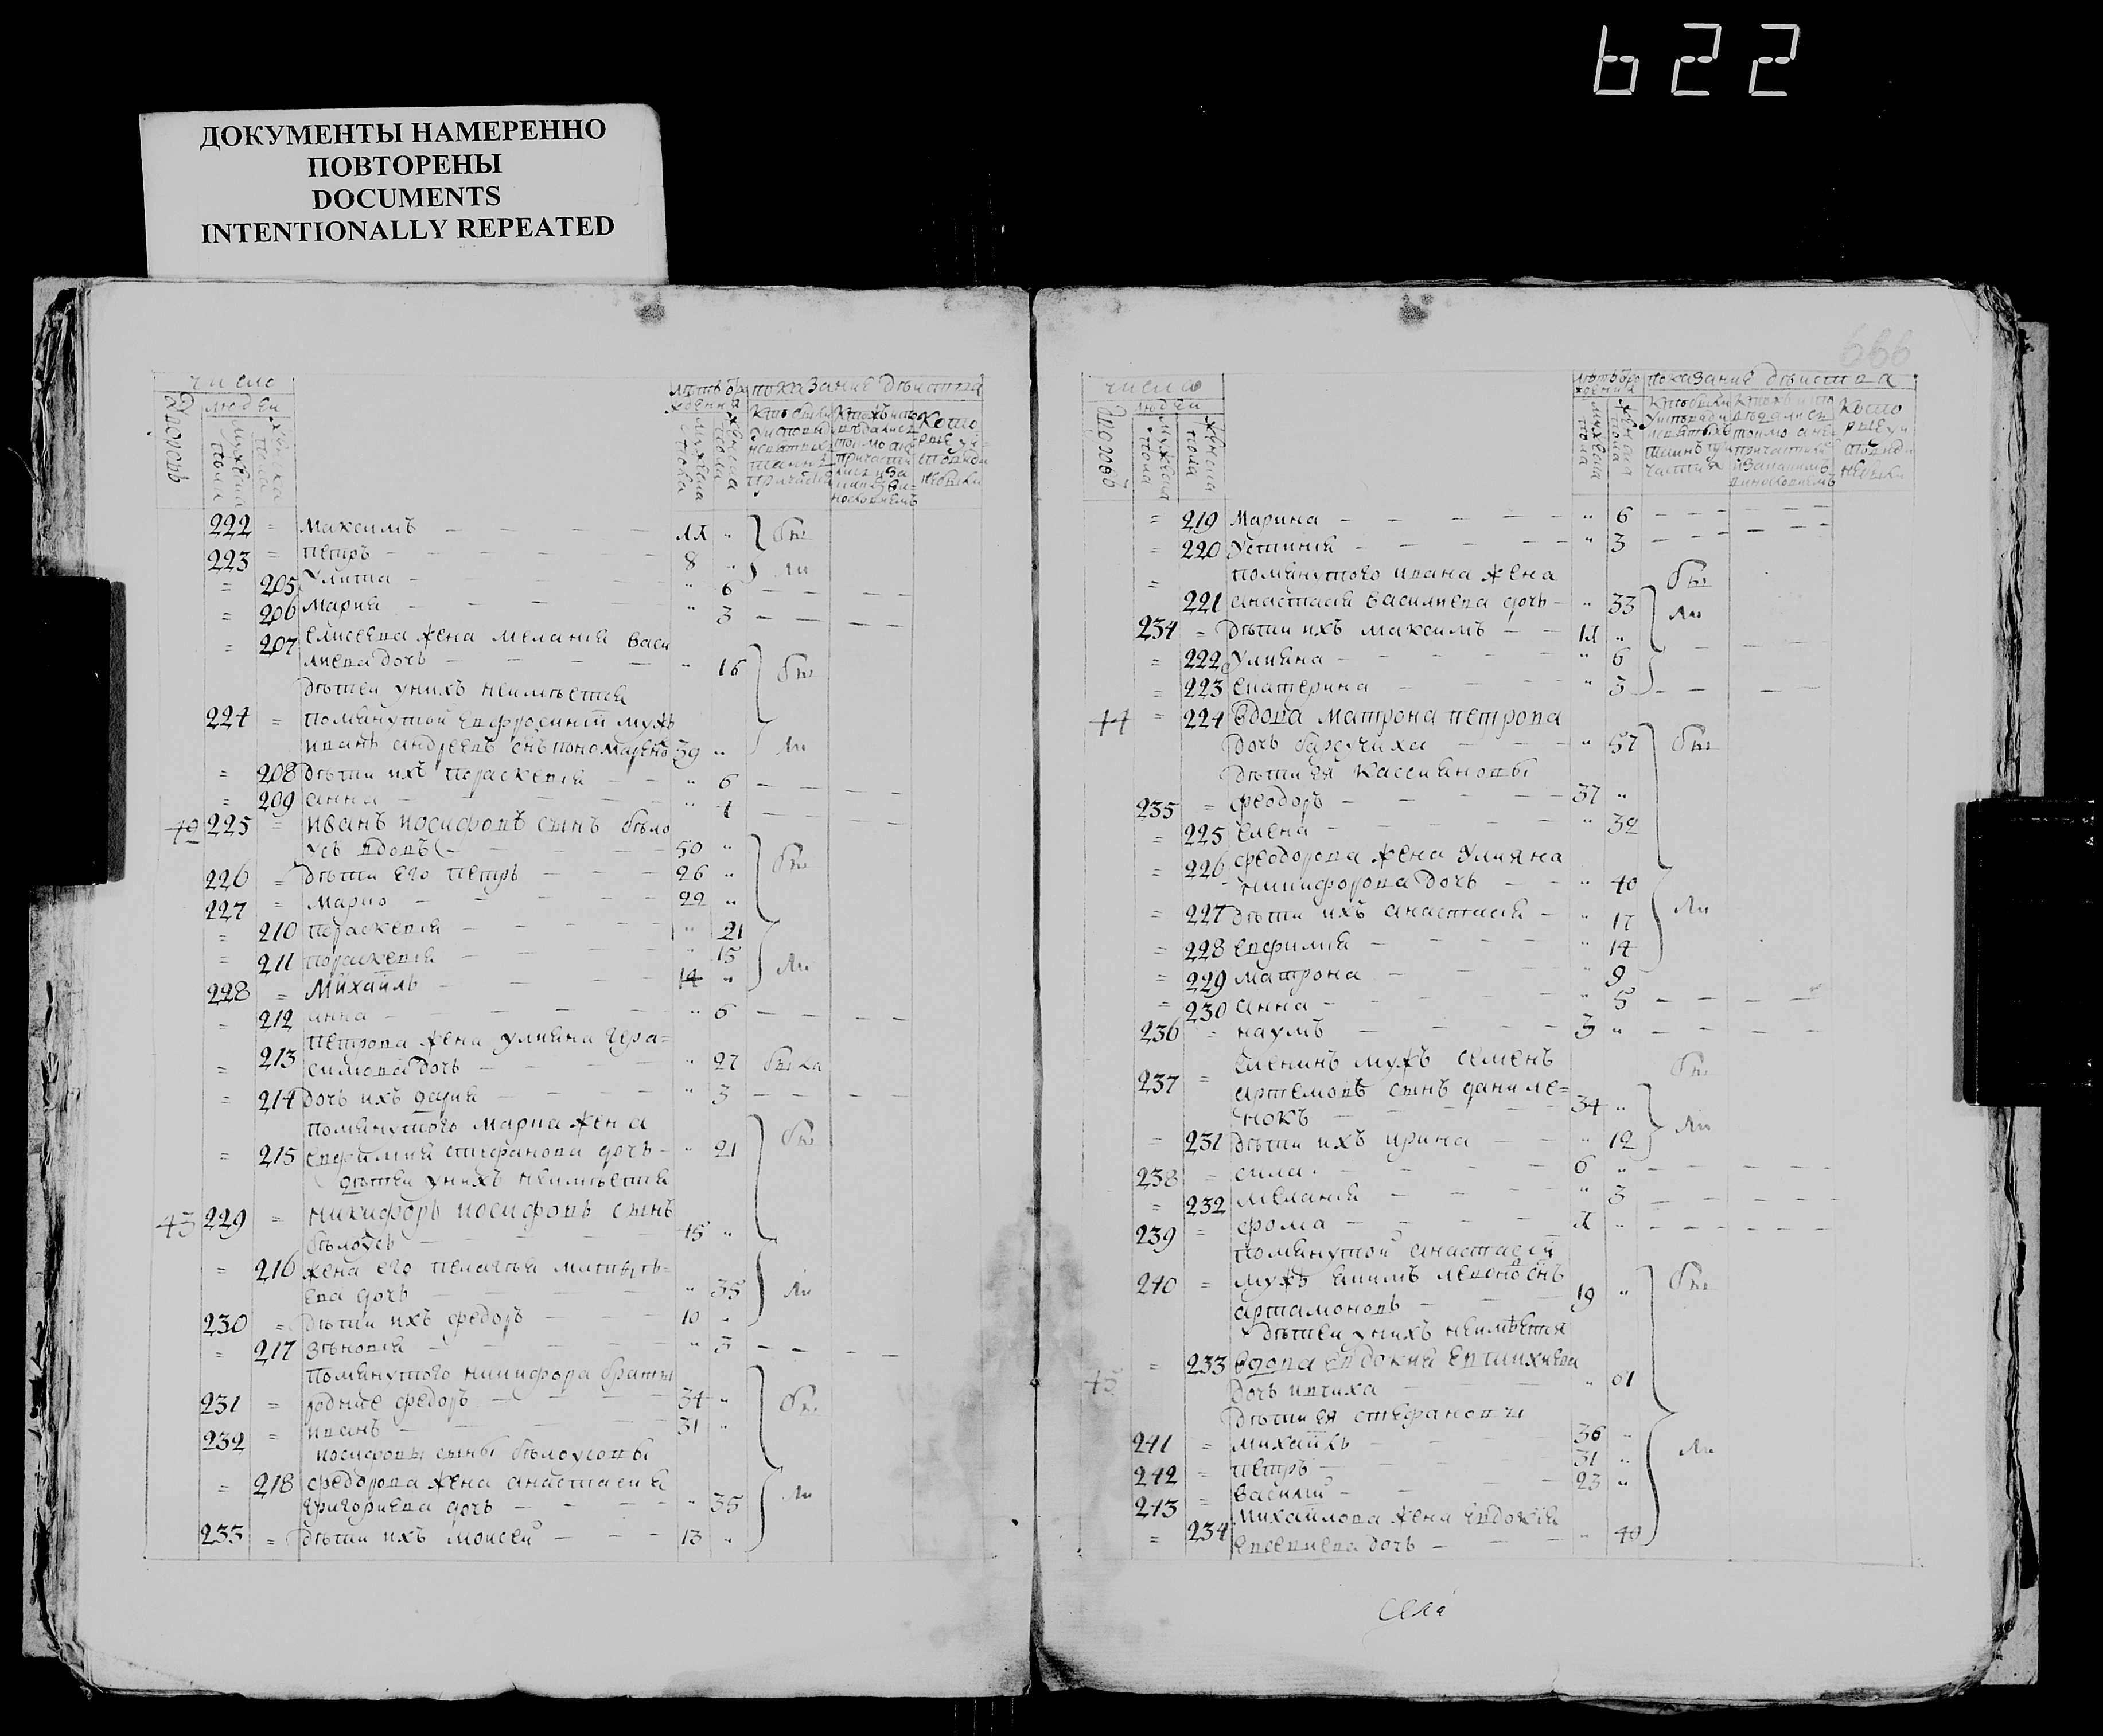 622
ДОКУМЕНТЫ НАМЕРЕННО
ПОВТОРЕНЫ
DOCUMENTS
INTENTIONALLY REPEATED
число
людеи
показание Dѣиства
222 = максимъ - 11 "
223 = петръ - 8 "
= 205 улита - " 6
= 206 мария - " 3
= 207 елисеева жена мелания васи
лиева дочь - " 16
дѣтеи унихъ неимѣется
224 = помянутой евфросинiи мужъ
иванъ андреевъ снъ пономаренко 39 "
= 208 дѣти ихъ параскевия - " 6
= 209 анна - " 1
42 225 = иванъ иосифовъ сынъ бѣло
усъ вдовъ - 50 "
226 = дѣти его петръ - 26 "
227 = марко - 22 "
= 210 параскевия - " 21
= 211 параскевия - " 15
228 = Михаилъ - 14 "
= 212 анна - " 6
= 213 петрова жена улияна гера=
симова дочь - " 27 была
= 214 дочь ихъ - " 3
помянутого марка жена
= 215 евфимия стефанова дочь - " 21
дѣтеи унихъ неимѣется
43 229 = никифоръ иосифовъ сынъ
бѣлоусъ - 45 "
= 216 жена его пелагея матвѣ=
ева дочь - " 35
230 = дѣти ихъ федоръ - 10 "
= 217 зѣновия - " 5
помянутого никифора братья
231 = родние федоръ - 34 "
232 = иванъ - 31 "
иосифовы сыны бѣлоусовы
= 218 федорова жена анастасия
григориева дочь - " 35
233 = дѣти ихъ моисей - 13 "
666
число
людеи
показание Dѣиства
= 219 марина - " 6
= 220 устиния - " 3
помянутого ивана жена
= 221 анастасия василиева дочь - " 33
234 = дѣти ихъ максимъ - 11 "
= 222 улияна - " 6
= 223 екатерина - " 3
44 = 224 вдова матрона петрова
дочь - " 57
дѣти ея кассияновы
235 = феодоръ - 37 "
= 225 елена - " 32
= 226 феодорова жена улияна
никифорова дочь - " 40
= 227 дѣти ихъ анастасия - " 17
= 228 евфимия - " 14
= 229 матрона - " 9
= 230 анна - " 5
236 = наумъ - 3 "
237 = еленинъ мужъ семенъ
артемовъ сынъ даниле=
нокъ - 34 "
= 231 дѣти ихъ ирина - " 12
238 = сила - 6 "
= 232 мелания - " 3
239 = фома - 1 "
помянутой анастасiи
240 = мужъ снъ
артамоновъ - 19 "
дѣтеи унихъ неимѣется
45 = 233 вдова евдокия евтихиева
дочь ивчиха - " 61
дѣти ея стефановы
241 = михаилъ - 36 "
242 = петръ - 31 "
243 = василий - 23 "
= 234 михаилова жена евдокiя
дочь - " 40
села